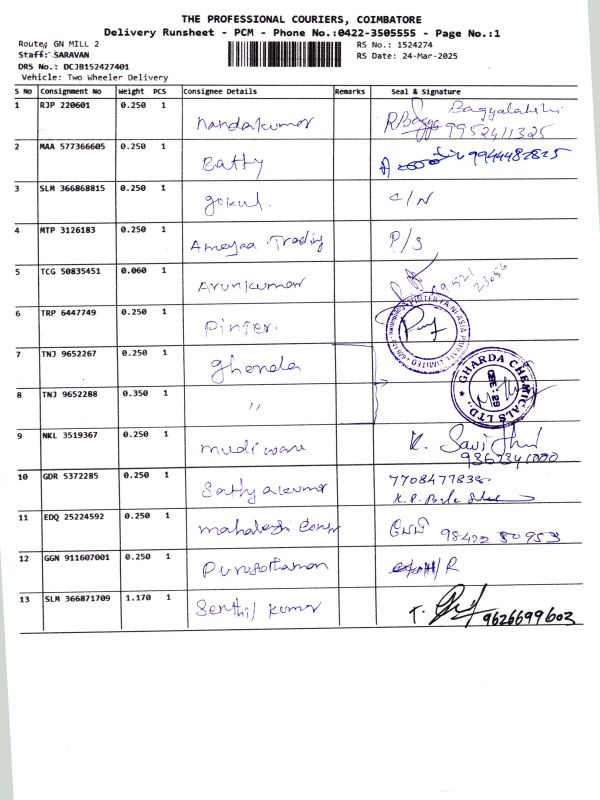 THE PROFESSIONAL COURIERS, COIMBATORE
Delivery Runsheet - PCM - Phone No.:0422-3505555 - Page No.:1
Route: GN MILL 2
RS No.: 1524274
Staff: SARAVAN
RS Date: 24-Mar-2025
DRS No.: DCJB152427401
Vehicle: Two Wheeler Delivery
S No Consignment No Weight PCS Consignee Details Remarks Seal & Signature
1 RJP 220601 0.250 1 Nandakumar Bagyalakshmi 9952411325
2 MAA 577366605 0.250 1 Bathy 9944482825
3 SLM 366868815 0.250 1 gokul. C/N
4 MTP 3126183 0.250 1 Ameyaa Trading P/S
5 TCG 50835451 0.060 1 Arunkumar
6 TRP 6447749 0.250 1 Pinter.
7 TNJ 9652267 0.250 1 Gharda GHARDA CHEMICALS LTD.
8 TNJ 9652288 0.350 1 "
9 NKL 3519367 0.250 1 mudi ware K.
10 GDR 5372285 0.250 1 Sathyakumar 7708477838
11 EDQ 25224592 0.250 1 mahalesh 98422 80953
12 GGN 911607001 0.250 1 Purusothaman /R
13 SLM 366871709 1.170 1 Senthil kumar T. 9626699603